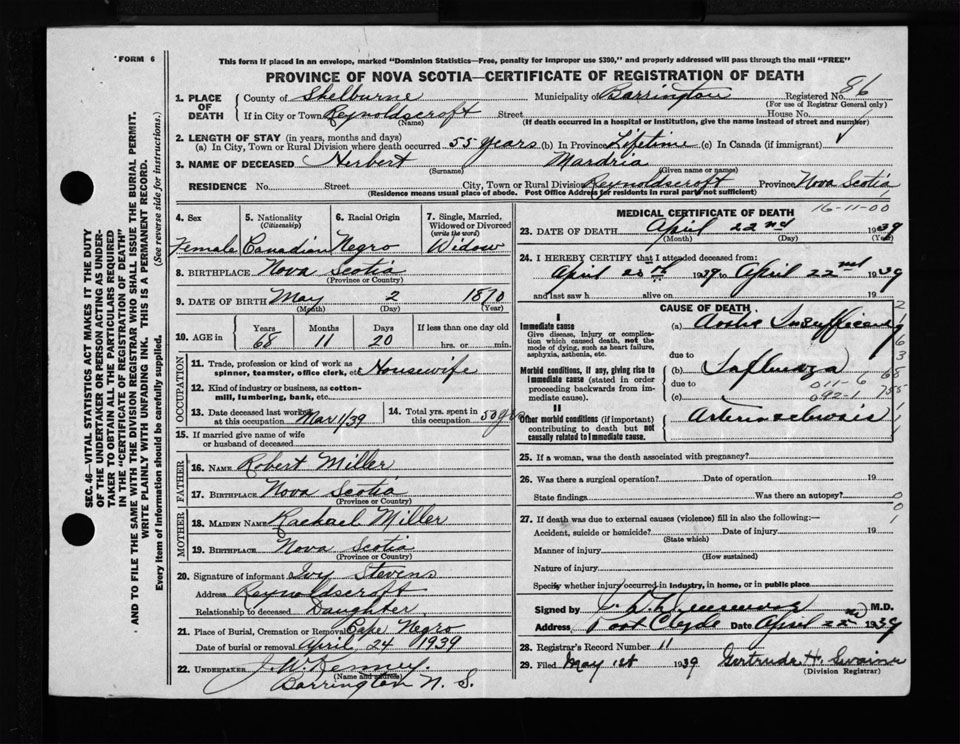 FORM 6
This form if placed in an envelope, marked "Dominion Statistics—Free, penalty for improper use $300," and properly addressed will pass through the mail "FREE"
PROVINCE OF NOVA SCOTIA—CERTIFICATE OF REGISTRATION OF DEATH
SEC. 46—VITAL STATISTICS ACT MAKES IT THE DUTY
OF THE UNDERTAKER OR PERSON ACTING AS UNDER-
TAKER TO OBTAIN ALL THE PARTICULARS REQUIRED
IN THE "CERTIFICATE OF REGISTRATION OF DEATH"
AND TO FILE THE SAME WITH THE DIVISION REGISTRAR WHO SHALL ISSUE THE BURIAL PERMIT.
WRITE PLAINLY WITH UNFADING INK. THIS IS A PERMANENT RECORD.
Every item of information should be carefully supplied. (See reverse side for instructions.)
1. PLACE OF DEATH County of Shelburne Municipality of Barrington Registered No. 86
(For use of Registrar General only)
If in City or Town Reynoldscroft Street House No.
(Name) (If death occurred in a hospital or institution, give the name instead of street and number)
2. LENGTH OF STAY (in years, months and days)
(a) In City, Town or Rural Division where death occurred 55 years (b) In Province Lifetime (c) In Canada (if immigrant)
3. NAME OF DECEASED Herbert Mardria
(Surname) (Given name or names)
RESIDENCE No. Street City, Town or Rural Division Reynoldscroft Province Nova Scotia
(Residence means usual place of abode. Post Office Address for residents in rural part not sufficient)
16-11-00
4. Sex
Female
5. Nationality
(Citizenship)
Canadian
6. Racial Origin
Negro
7. Single, Married,
Widowed or Divorced
(write the word)
Widow
8. BIRTHPLACE Nova Scotia
(Province or Country)
9. DATE OF BIRTH May 2 1870
(Month) (Day) (Year)
10. AGE in Years Months Days If less than one day old
68 11 20 hrs. or min.
OCCUPATION
11. Trade, profession or kind of work as
spinner, teamster, office clerk, etc. Housewife
12. Kind of industry or business, as cotton-
mill, lumbering, bank, etc.
13. Date deceased last worked
at this occupation Mar 1/39
14. Total yrs. spent in
this occupation 50 yrs
15. If married give name of wife
or husband of deceased
FATHER
16. NAME Robert Miller
17. BIRTHPLACE Nova Scotia
(Province or Country)
MOTHER
18. MAIDEN NAME Rachael Miller
19. BIRTHPLACE Nova Scotia
(Province or Country)
20. Signature of informant Ivy Stevens
Address Reynoldscroft
Relationship to deceased Daughter
21. Place of Burial, Cremation or Removal Cape Negro
Date of burial or removal April 24 1939
22. UNDERTAKER J. W. Kenney
(Name and address)
Barrington N. S.
MEDICAL CERTIFICATE OF DEATH
23. DATE OF DEATH April 22nd 1939
(Month) (Day) (Year)
24. I HEREBY CERTIFY that I attended deceased from:
April 20th 1939 to April 22nd 1939
and last saw h alive on 19
CAUSE OF DEATH
I
Immediate cause
Give disease, injury or complication which caused death, not the mode of dying, such as heart failure, asphyxia, asthenia, etc.
(a) Aortic Insufficiency
due to
Morbid conditions, if any, giving rise to immediate cause (stated in order proceeding backwards from immediate cause).
(b) Influenza
due to 011-6
(c) 092-1
II
Other morbid conditions (if important) contributing to death but not causally related to immediate cause.
Arteriosclerosis
25. If a woman, was the death associated with pregnancy?
26. Was there a surgical operation? Date of operation 19
State findings Was there an autopsy?
27. If death was due to external causes (violence) fill in also the following:—
Accident, suicide or homicide? Date of injury 19
(State which)
Manner of injury
(How sustained)
Nature of injury
Specify whether injury occurred in industry, in home, or in public place
Signed by M.D.
Address Port Clyde Date April 22nd 1939
28. Registrar's Record Number 11
29. Filed May 1st 1939 Gertrude H. Swaine
(Division Registrar)